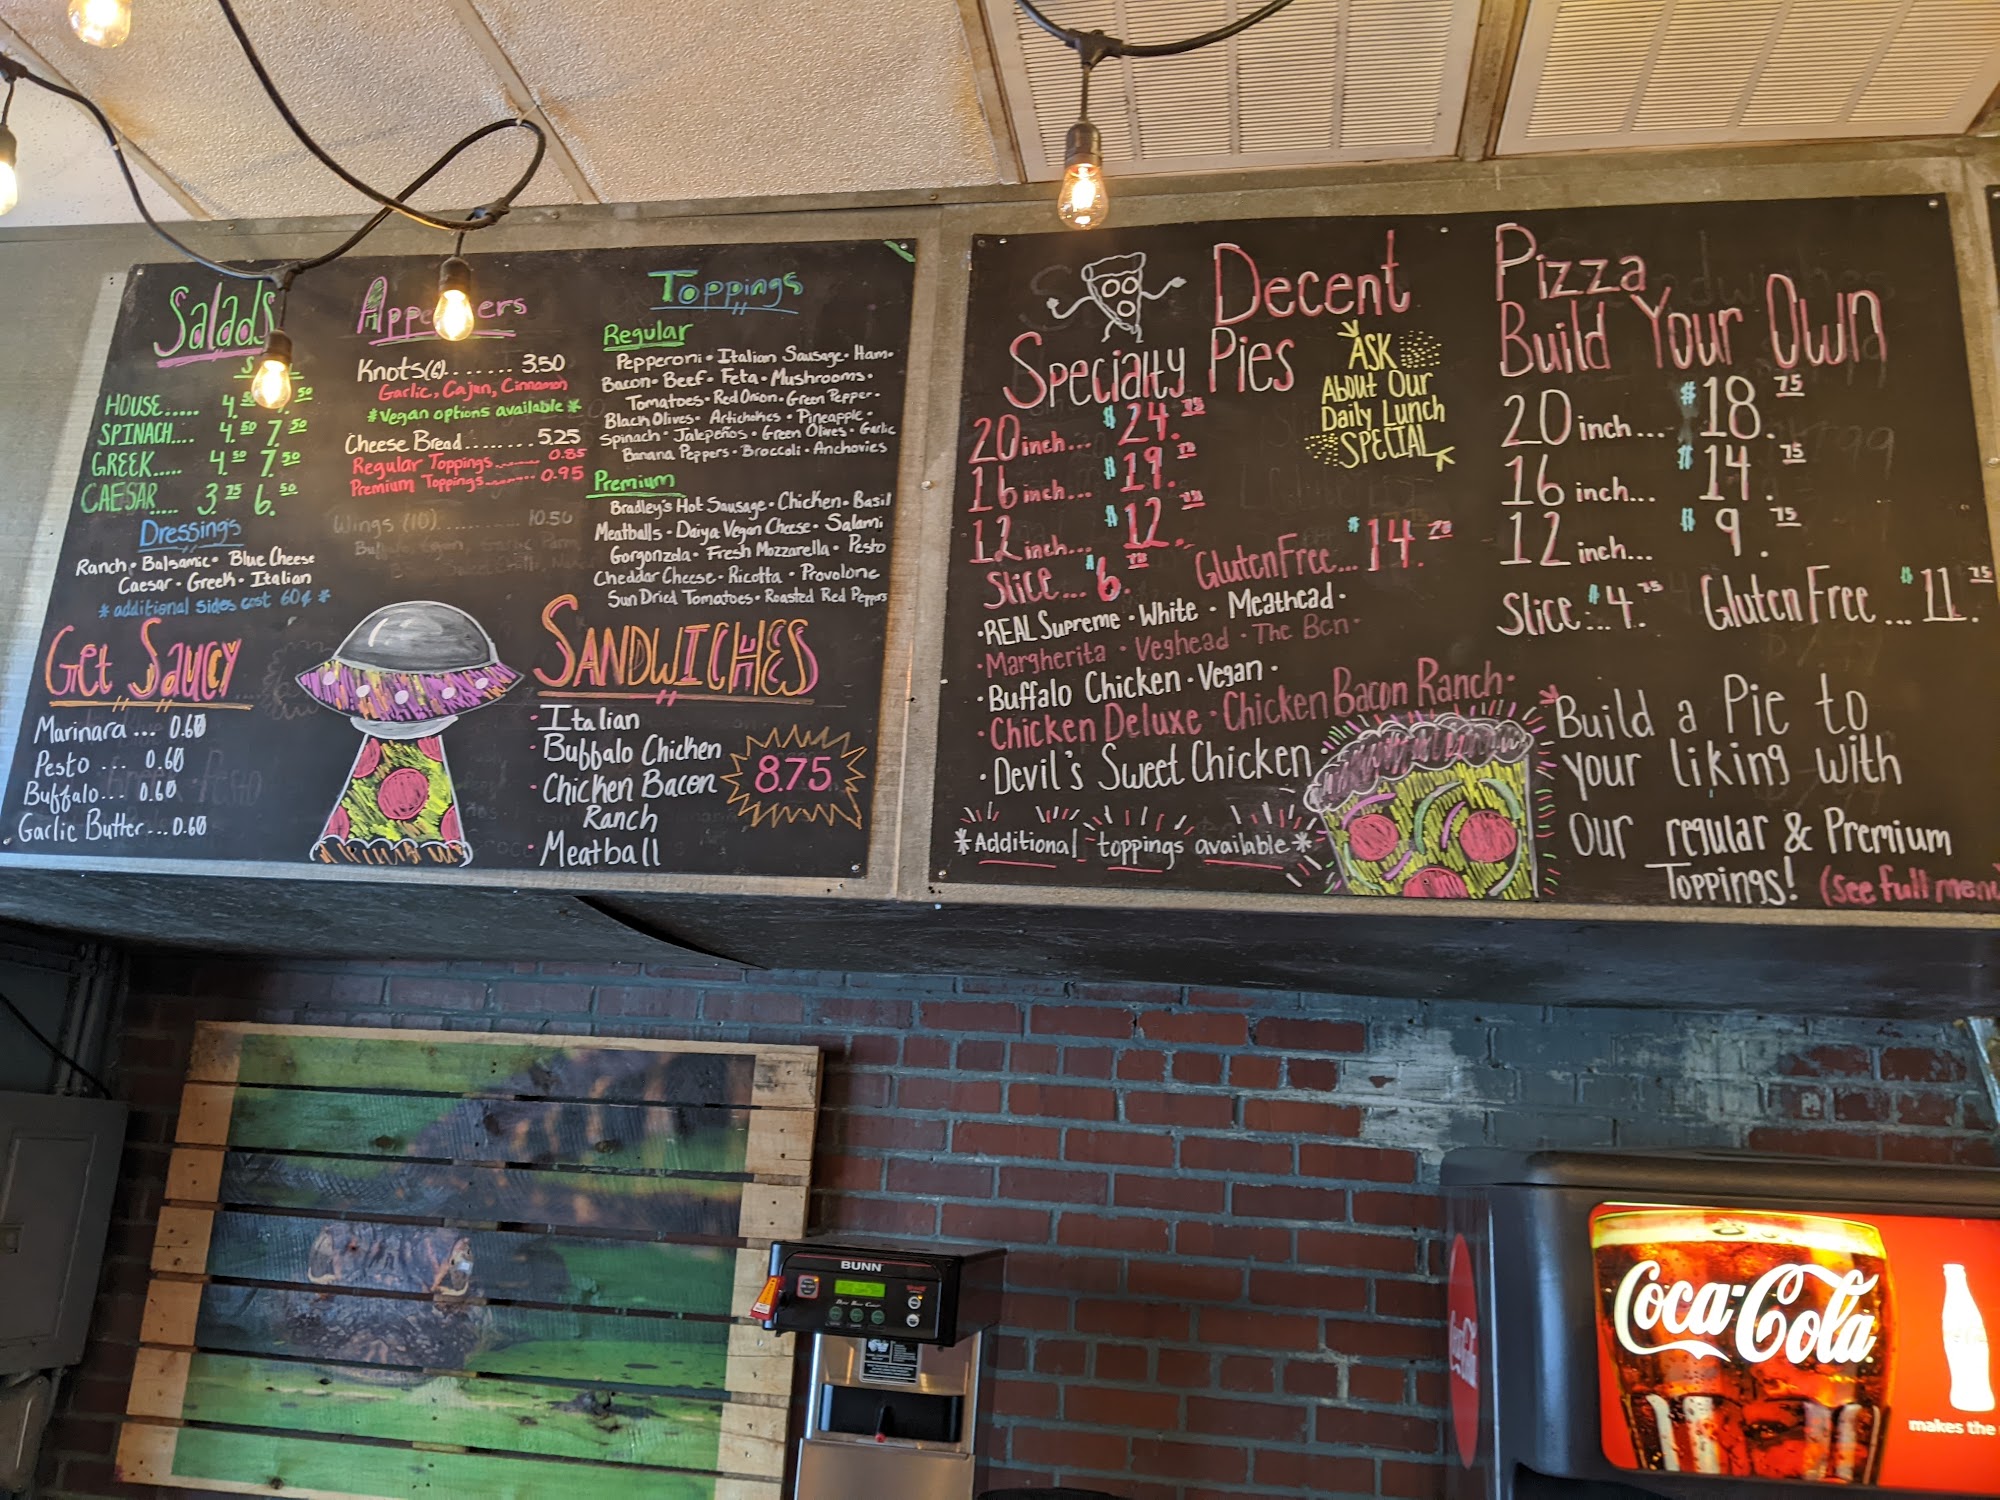 Salads
HOUSE..... 4.50 .50
SPINACH.... 4.50 7.50
GREEK..... 4.50 7.50
CAESAR..... 3.75 6.50
Dressings
Ranch • Balsamic • Blue Cheese
Caesar • Greek • Italian
* additional sides cost 60¢ *
Get Saucy
Marinara ... 0.60
Pesto ... 0.60
Buffalo... 0.60
Garlic Butter... 0.60
Knots(6)........ 3.50
Garlic, Cajun, Cinnamon
*Vegan options available*
Cheese Bread........ 5.25
Regular Toppings........ 0.85
Premium Toppings........ 0.95
Wings (10)............ 10.50
Toppings
Regular
Pepperoni • Italian Sausage • Ham •
Bacon • Beef • Feta • Mushrooms •
Tomatoes • Red Onion • Green Pepper •
Black Olives • Artichokes • Pineapple •
Spinach • Jalepeños • Green Olives • Garlic
Banana Peppers • Broccoli • Anchovies
Premium
Bradley's Hot Sausage • Chicken • Basil
Meatballs • Daiya Vegan Cheese • Salami
Gorgonzola • Fresh Mozzarella • Pesto
Cheddar Cheese • Ricotta • Provolone
Sun Dried Tomatoes • Roasted Red Peppers
SANDWICHES
• Italian
• Bubbalo Chicken
• Chicken Bacon
Ranch
• Meatball
8.75
Decent
Pizza
Specialty Pies
20 inch... $24.75
16 inch... $19.75
12 inch... $12.75
Slice... $6.75
Gluten Free... $14.75
ASK
About Our
Daily Lunch
SPECIAL
• REAL Supreme • White • Meathead •
• Margherita • Veghead • The Ben •
• Buffalo Chicken • Vegan •
• Chicken Deluxe • Chicken Bacon Ranch •
• Devil's Sweet Chicken
*Additional toppings available*
Build Your Own
20 inch... $18.75
16 inch... $14.75
12 inch... $9.75
Slice... $4.75 Gluten Free... $11.75
Build a Pie to
your liking with
Our regular & Premium
Toppings! (See full menu)
BUNN
Coca-Cola
makes the